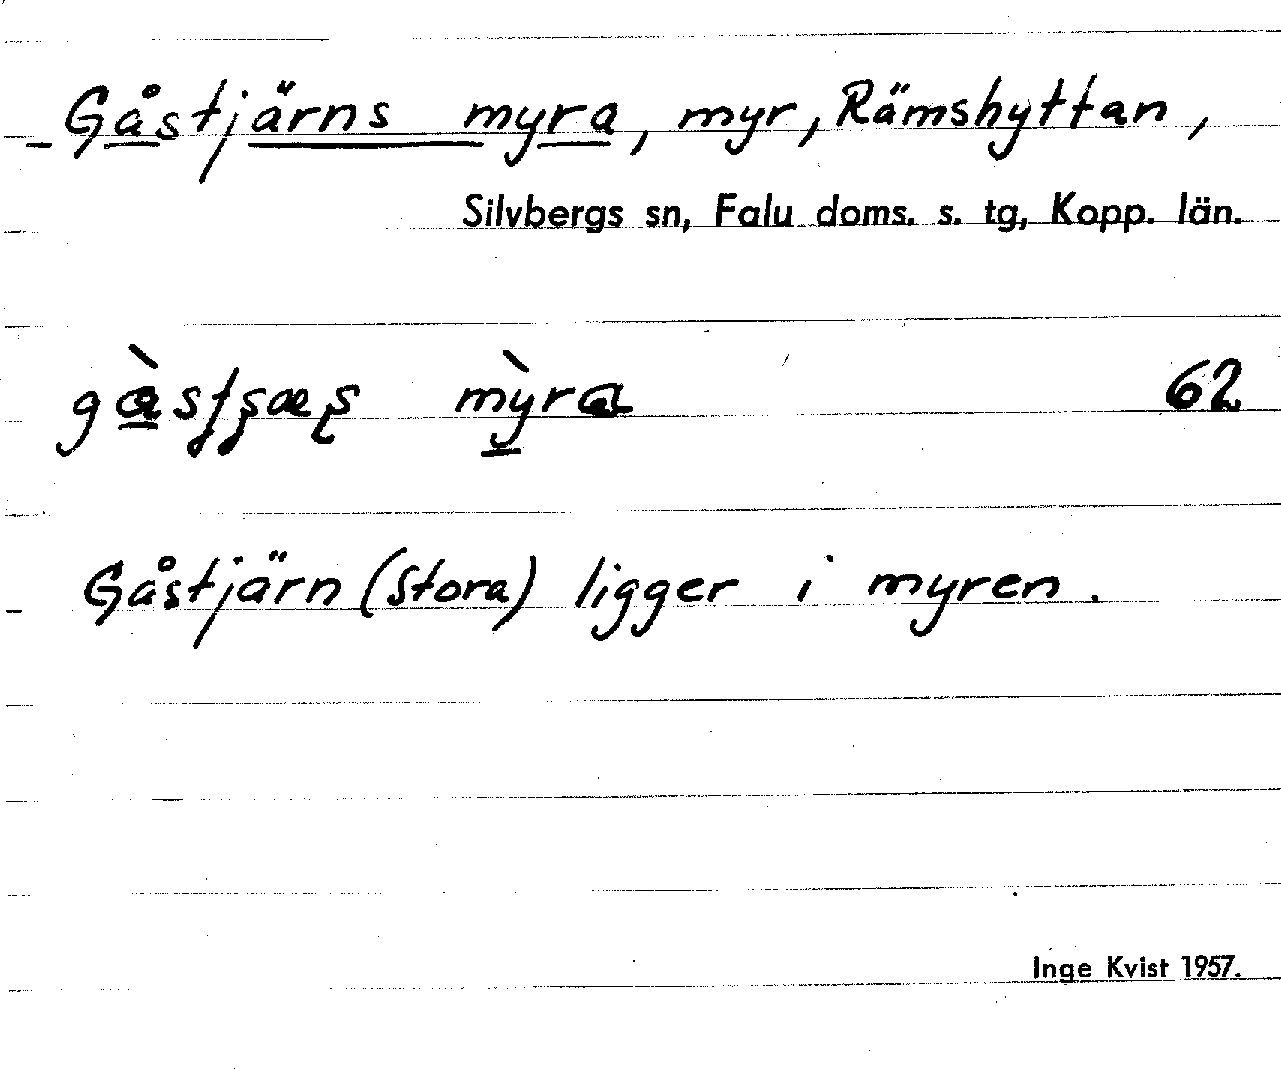 Gåstjärns myra, myr, Rämshyttan,
Silvbergs sn, Falu doms. s. tg, Kopp. län.
myra 62
Gåstjärn (Stora) ligger i myren.
Inge Kvist 1957.